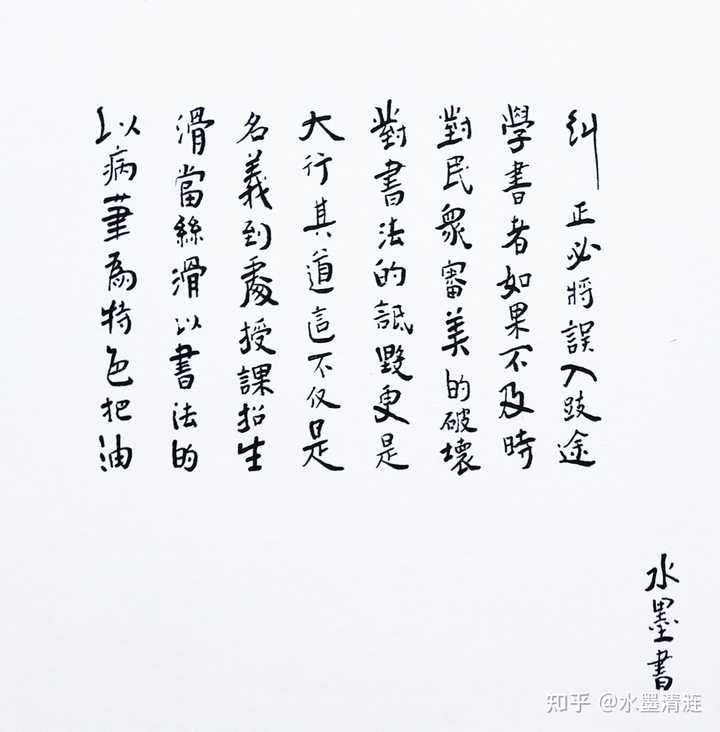 以病筆為特色把油
滑當絲滑以書法的
名義到處授課招生
大行其道這不仅是
對書法的詆毀更是
對民衆審美的破壞
學書者如果不及時
糾正必將誤入歧途
水墨書
知乎 @水墨清涟